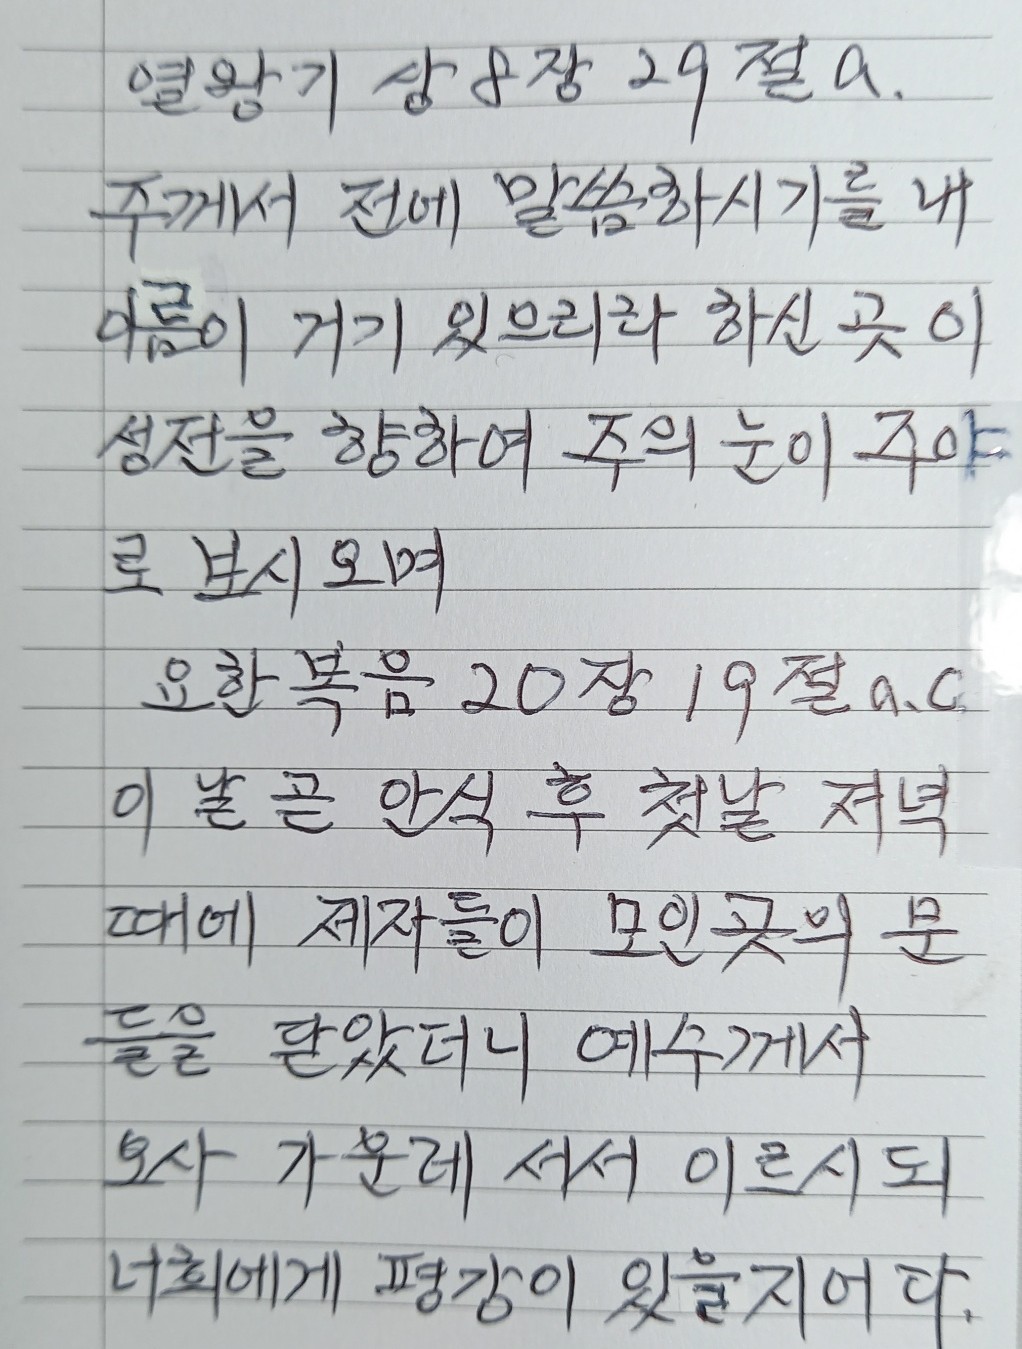 열왕기 상 8장 29절 a.
주께서 전에 말씀하시기를 내
이름이 거기 있으리라 하신 곳 이
성전을 향하여 주의 눈이 주야
로 보시오며
요한복음 20장 19절 a.c
이 날 곧 안식 후 첫날 저녁
때에 제자들이 모인곳의 문
들을 닫았더니 예수께서
오사 가운데 서서 이르시되
너희에게 평강이 있을지어다.